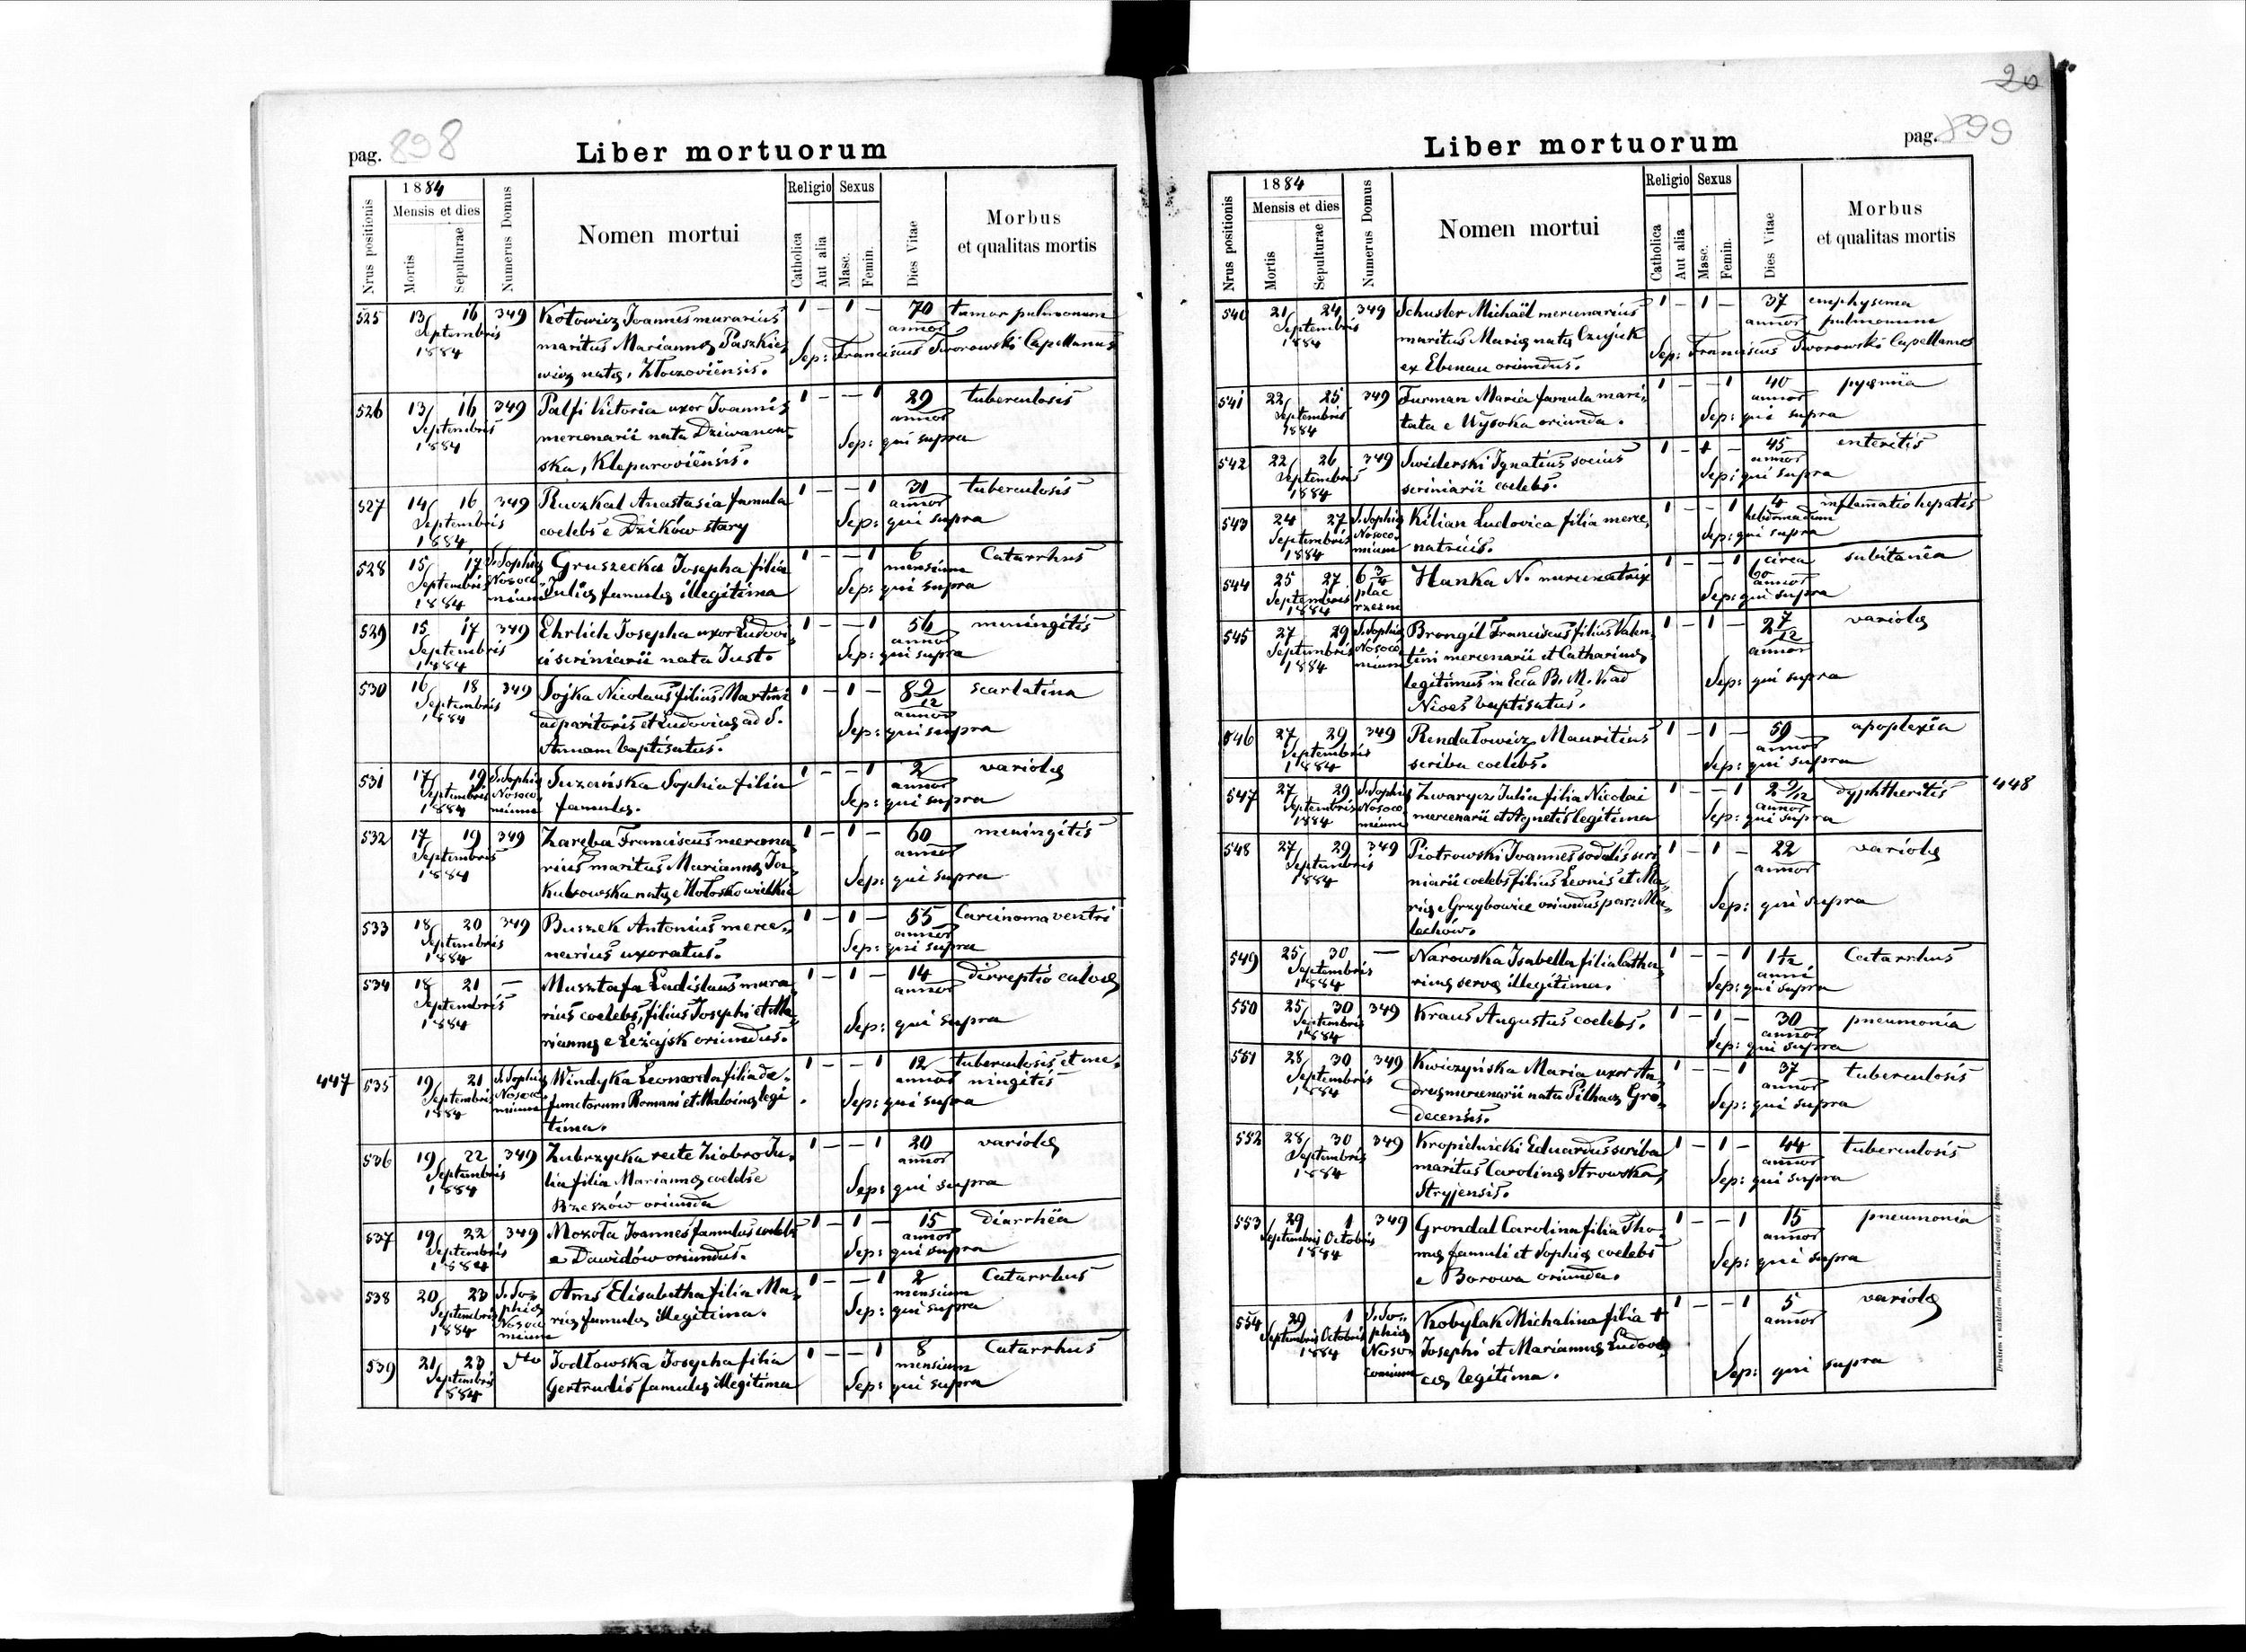 pag. 898
Liber mortuorum
Nrus positionis
1884
Mensis et dies
Mortis
Sepulturae
Numerus Domus
Nomen mortui
Religio
Catholica
Aut alia
Sexus
Masc.
Femin.
Dies Vitae
Morbus
et qualitas mortis
525 13/ 16 349 Kotowicz Joannes murarius 1 – 1 – 70 tumor pulmonum
Septembris maritus Mariannæ Paszkie, annor Sep: Franciscus Tworowski Capellanus
1884 wicz natæ, Złoczoviensis.
526 13/ 16 349 Palfi Victoria uxor Joannis 1 – – 1 29 tuberculosis
Septembris mercenarii nata Dziwanow- annor
1884 ska, Kleparoviensis. Sep: qui supra
527 14/ 16 349 Ruczkal Anastasia famula 1 – – 1 31 tuberculosis
Septembris coelebs e Dzików stary annor Sep: qui supra
1884
528 15/ 17 S. Sophiæ Gruszecka Josepha filia 1 – – 1 6 Catarrhus
Septembris Nosoco- Juliæ famulæ illegitima mensium Sep: qui supra
1884 mium
529 15 17 349 Ehrlich Josepha uxor Ludovi, 1 – – 1 56 meningitis
Septembris ci scriniarii nata Just. annor Sep: qui supra
1884
530 16 18 349 Sojka Nicolaus filius Martini 1 – 1 – 8 2/12 scarlatina
Septembris adparitoris et Ludovicæ ad S. annor
1884 Annam baptisatus. Sep: qui supra
531 17/ 19 S. Sophiæ Suzańska Sophia filia 1 – – 1 2 variolæ
Septembris Nosoco, famulæ. annor Sep: qui supra
1884 mium
532 17 19 349 Zareba Franciscus mercena, 1 – 1 – 60 meningitis
Septembris rius maritus Mariannæ Ja- annor
1884 kubowska natæ e Hołosko wielkie Sep: qui supra
533 18/ 20 349 Buszek Antonius merce- 1 – 1 – 55 Carcinoma ventri
Septembris narius uxoratus. annor Sep: qui supra
1884
534 18 21 — Musztafa Ladislaus mura, 1 – 1 – 14 dirreptio calvæ
Septembris rius coelebs, filius Josephi et Ma, annor
1884 riannæ e Leżajsk oriundus. Sep: qui supra
447 535 19/ 21 S. Sophiæ Windyka Leonarda filia de- 1 – – 1 12 tuberculosis et me-
Septembris Nosoco functorum Romani et Malvinæ legi annor ningitis
1884 mium tima. Sep: qui supra
536 19/ 22 349 Zubrzycka recte Ziobro Ju- 1 – – 1 20 variolæ
Septembris lia filia Mariannæ coelebs e annor
1884 Brzeszów oriunda Sep: qui supra
537 19/ 22 349 Mozoła Joannes famulus coelebs 1 – 1 – 15 diarrhëa
Septembris e Dawidów oriundus. annor Sep: qui supra
1884
538 20 23 S. So- Ams Elisabetha filia Ma- 1 – – 1 2 Catarrhus
Septembris phiæ riæ famulæ illegitima. mensium Sep: qui supra
1884 Nosoco
mium
539 21/ 23 dto Jodłowska Josepha filia 1 – – 1 8 Catarrhus
Septembris Gertrudis famulæ illegitima mensium Sep: qui supra
1884
20
pag. 899
Liber mortuorum
Nrus positionis
1884
Mensis et dies
Mortis
Sepulturae
Numerus Domus
Nomen mortui
Religio
Catholica
Aut alia
Sexus
Masc.
Femin.
Dies Vitae
Morbus
et qualitas mortis
540 21 24 349 Schuster Michaël mercenarius 1 – 1 – 37 emphysema
Septembris maritus Mariæ natæ Czujek annor pulmonum
1884 ex Ebenau oriundus. Sep: Franciscus Tworowski Capellanus
541 22/ 25 349 Furman Maria famula mari- 1 – – 1 40 pyæmia
Septembris tata e Wysoka oriunda. annor Sep: qui supra
1884
542 22/ 26 349 Swiderski Ignatius socius 1 – 1 – 45 enteritis
Septembris scriniarii coelebs. annor Sep: qui supra
1884
543 24 27 S. Sophiæ Kilian Ludovica filia merce, 1 – – 1 4 inflamatio hepatis
Septembris Nosoco- natricis. hebdomadum Sep: qui supra
1884 mium
544 25 27 6 3/4 Hanka N. mercenatrix 1 – – 1 circa subitanëa
Septembris plac 60 annor
1884 rzezni Sep: qui supra
545 27 29 S. Sophiæ Brongil Franciscus filius Valen, 1 – 1 – 2 7/12 variolæ
Septembris Nosoco, tini mercenarii et Catharinæ annor
1884 mium legitimus in Eccla B. M. V. ad Sep: qui supra
Nives baptisatus.
546 27 29 349 Rendałowicz Mauritius 1 – 1 – 59 apoplexia
Septembris scriba coelebs. annor Sep: qui supra
1884
547 27 29 S. Sophiæ Zwarycz Julia filia Nicolai 1 – – 1 2 9/12 dyphtheritis 448
Septembris Nosoco mercenarii et Agnetis legitima annor Sep: qui supra
1884 mium
548 27 29 349 Piotrowski Joannes sodalis scri 1 – 1 – 22 variolæ
Septembris niarii coelebs filius Leonis et Ma, annor
1884 riæ e Grzybowice oriundus par: Ma, Sep: qui supra
lechów.
549 25/ 30 — Narowska Isabella filia Catha, 1 – – 1 1 1/2 Catarrhus
Septembris rinæ servæ illegitima. anni Sep: qui supra
1884
550 25/ 30 349 Kraus Augustus coelebs. 1 – 1 – 30 pneumonia
Septembris annor Sep: qui supra
1884
551 28 30 349 Kwiczyńska Maria uxor An, 1 – – 1 37 tuberculosis
Septembris dreæ mercenarii nata Pilhacz Gro, annor
1884 decensis. Sep: qui supra
552 28 30 349 Kropielnicki Eduardus scriba 1 – 1 – 44 tuberculosis
Septembris maritus Carolinæ Strowska, annor
1884 Stryjensis. Sep: qui supra
553 29 1 349 Grondal Carolina filia Tho- 1 – – 1 15 pneumonia
Septembris Octobris mæ famuli et Sophiæ coelebs annor
1884 e Borowa oriunda. Sep: qui supra
554 29 1 S. So- Kobylak Michalina filia + 1 – – 1 5 variolæ
Septembris Octobris phiæ Josephi et Mariannæ Ludovi annor
1884 Noso- cæ legitima. Sep: qui supra
comium